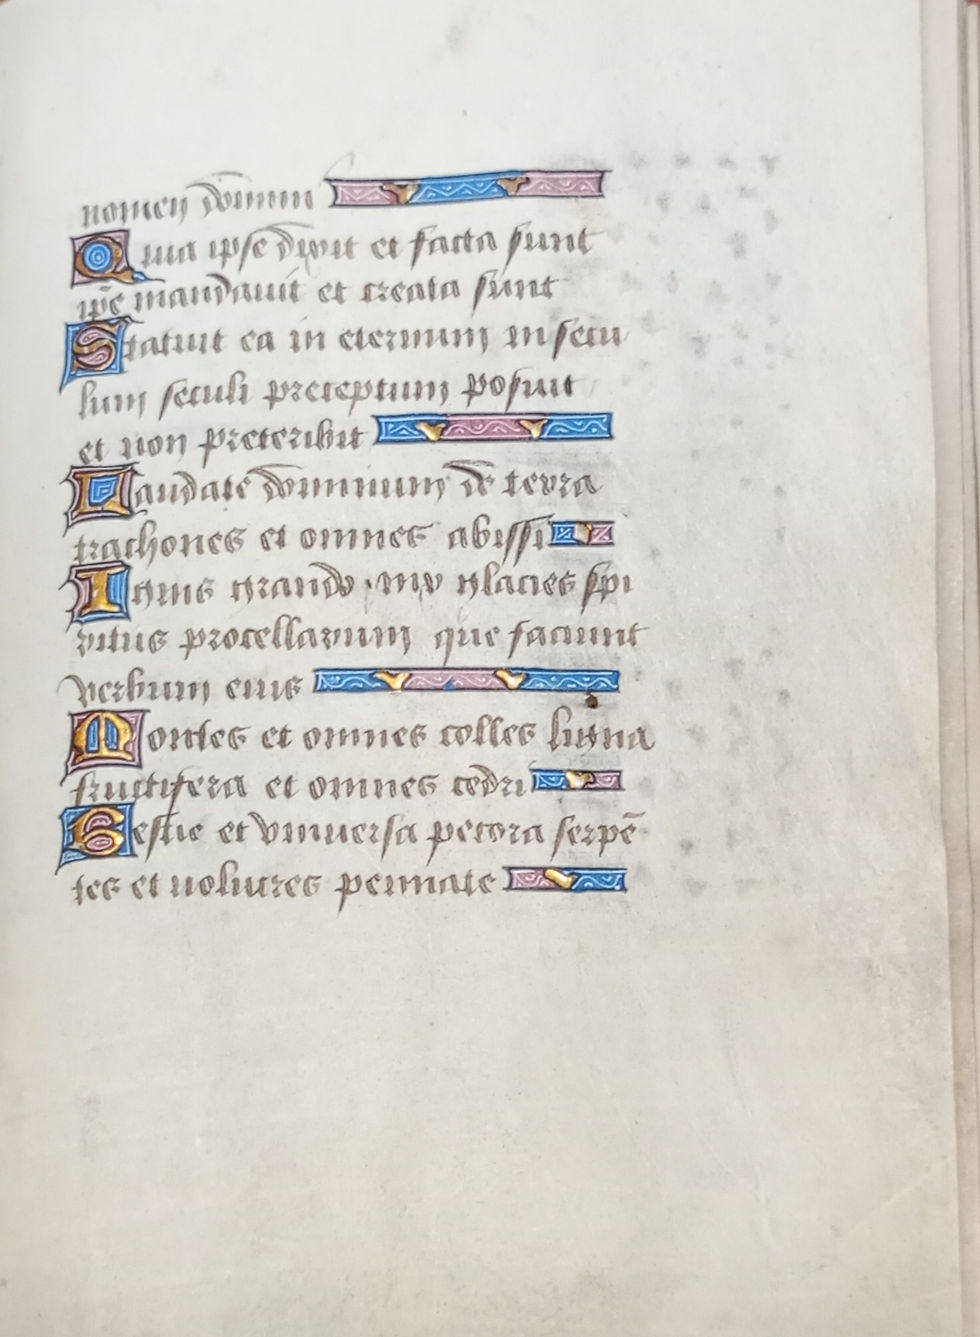 nomen domini
Quia ipse dixit et facta sunt
ipē mandauit et creata sunt
Statuit ea in eternum in secu
lum seculi preceptum posuit
et non preteribit
Laudate dominum de terra
trachones et omnes abissi
Ignis grando nix glacies spi
ritus procellarum que faciunt
verbum eius
Montes et omnes colles ligna
fructifera et omnes cedri
Bestie et vniuersa pecora serpē
tes et uolucres pennate